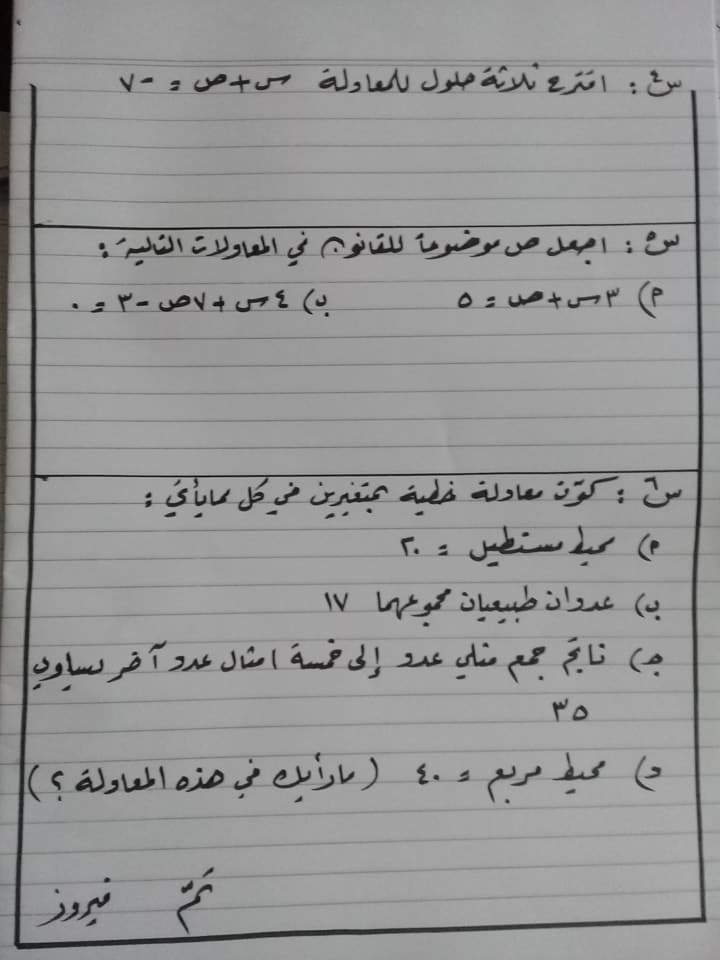 س٤ : اقترح ثلاثة حلول للمعاولة س + ص = -٧
س٥ : اجعل ص موضوعاً للقانون في المعاولات التالية :
م) ٣س + ص = ٥ ب) ٤س + ٧ص - ٣ = ٠
س٦ : كوّن معاولة خطية بمتغيرين في كل مما يأتي :
م) محيط مستطيل = ٢٠
ب) عدوان طبيعيان مجموعهما ١٧
جـ) ناتج جمع مثلي عدو إلى خمسة امثال عدو آخر يساوي
٣٥
د) محيط مربع = ٤٠ ( مارأيك في هذه المعاولة ؟ )
تمّ فيروز